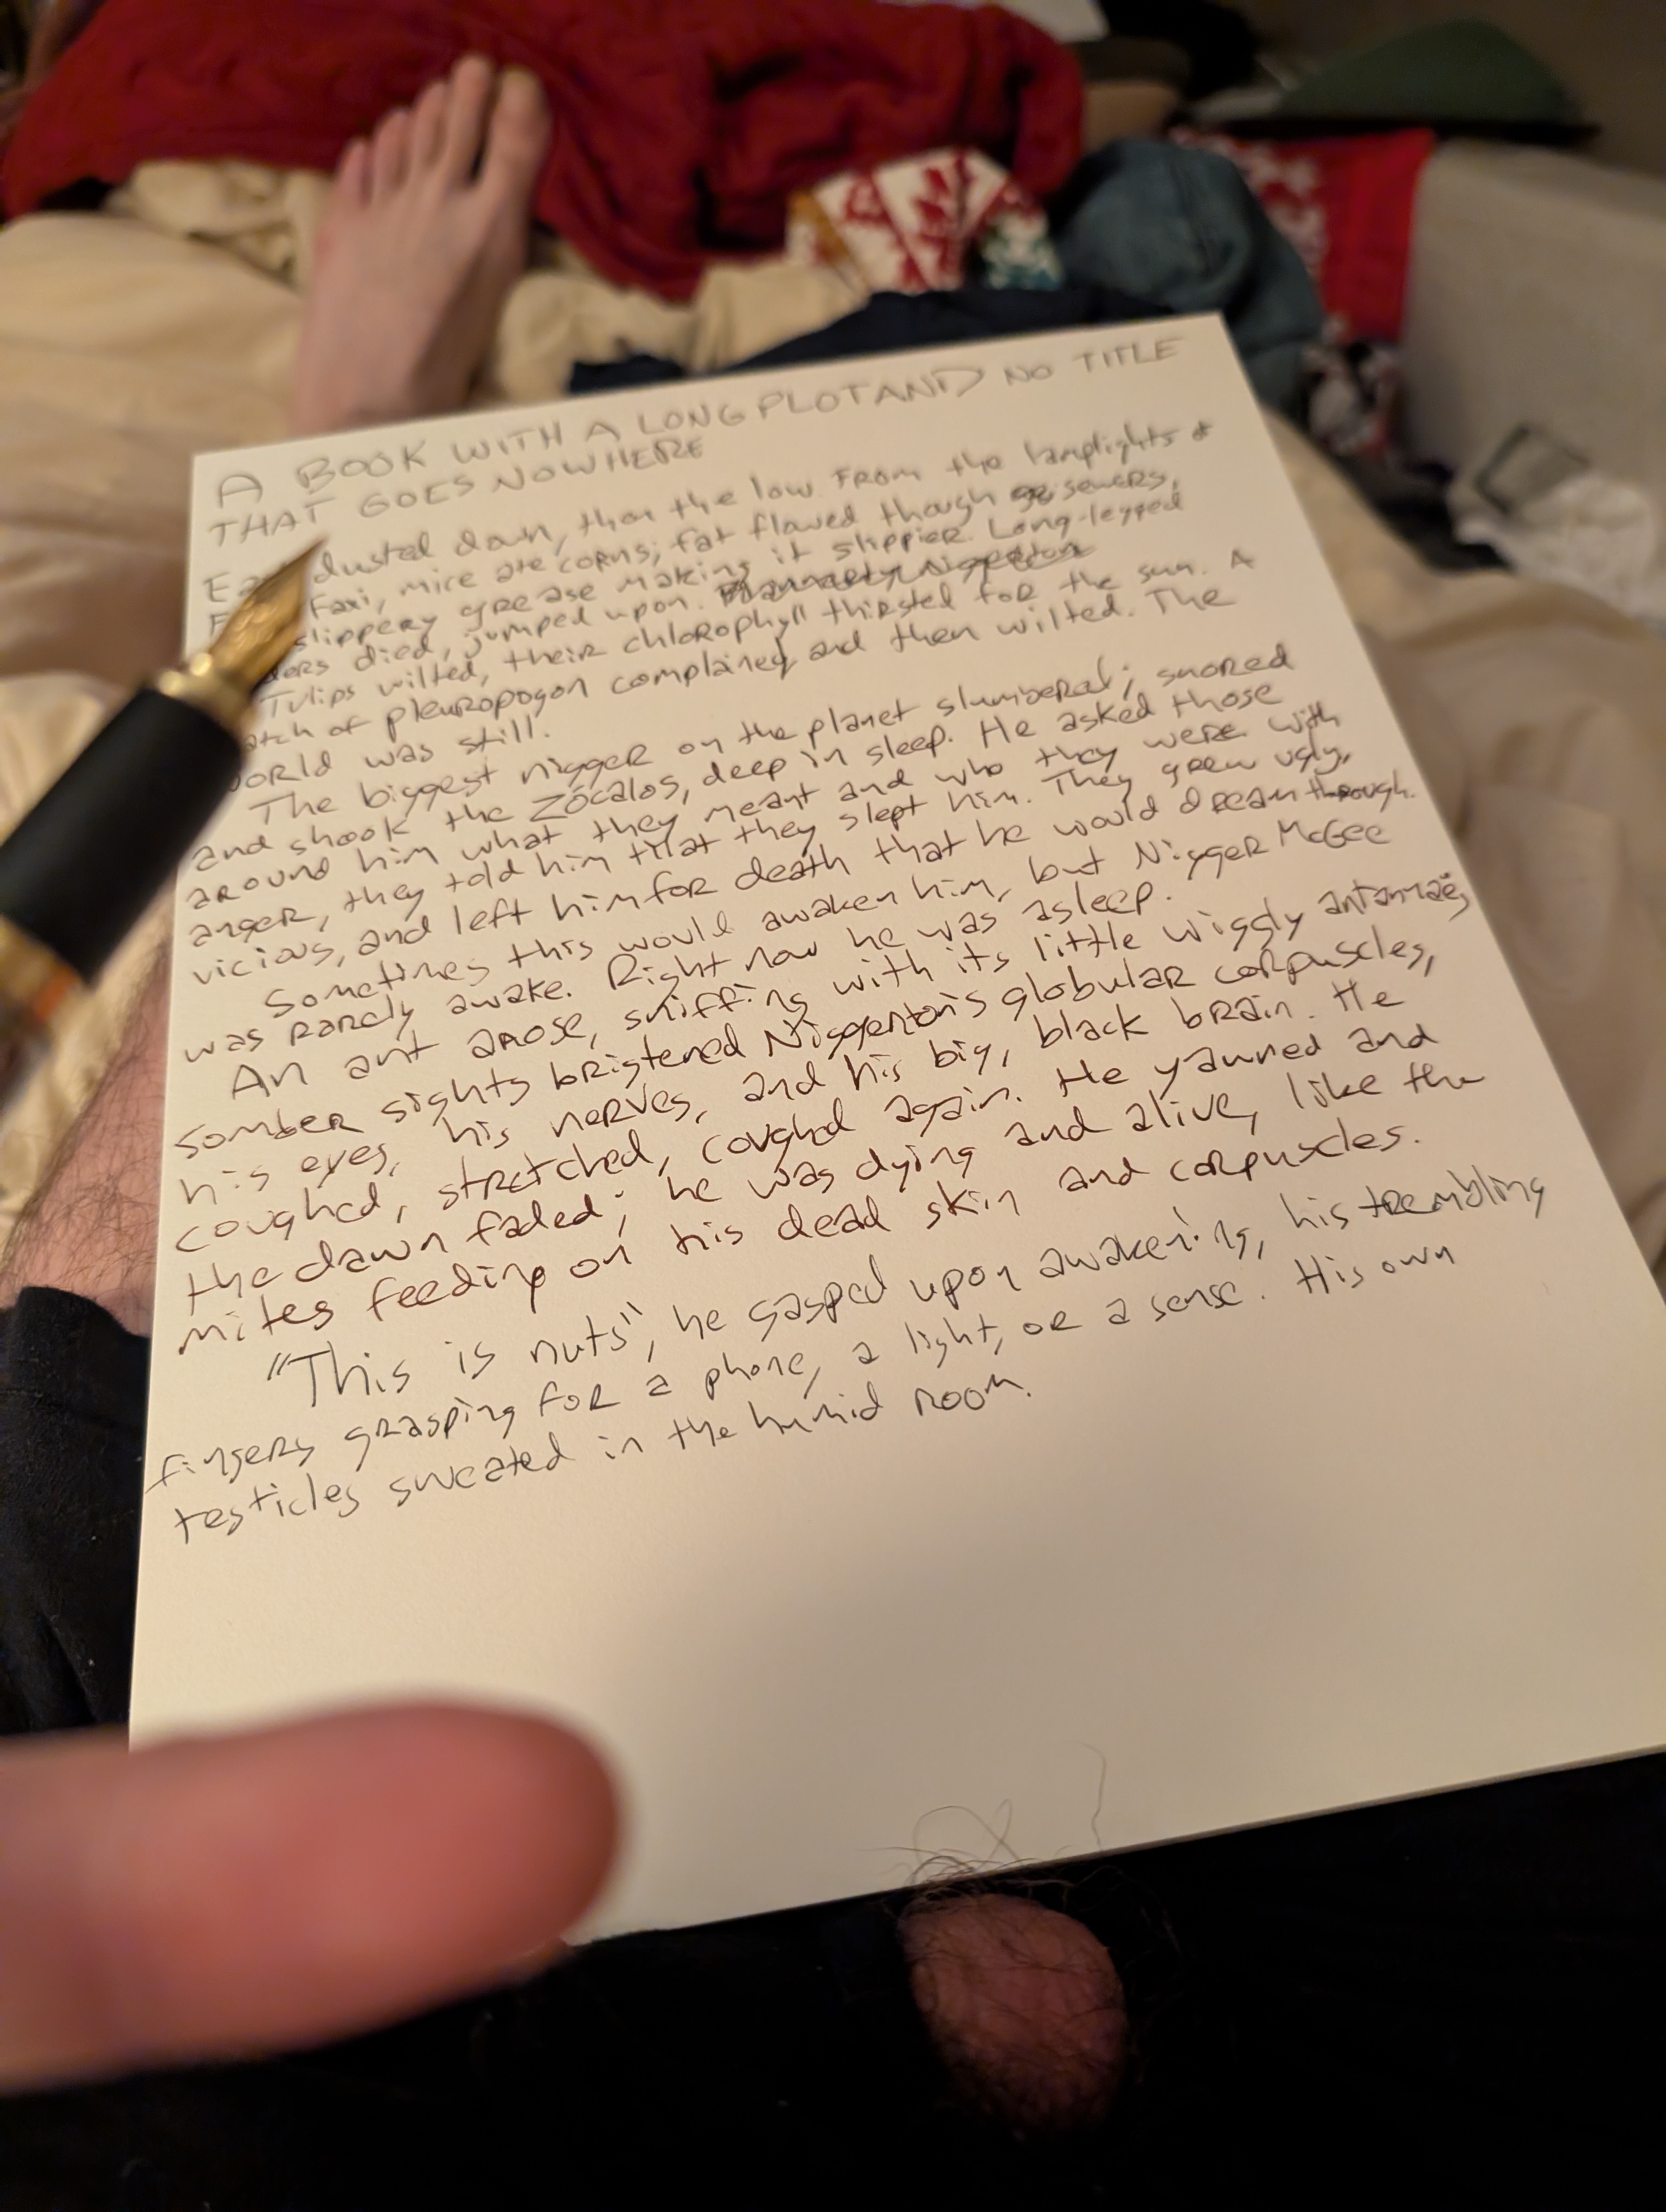 A BOOK WITH A LONG PLOT AND NO TITLE
THAT GOES NOWHERE
dusted down, then the low from the lamplights &
Faxi, mice ate corns; fat flawed though sewers,
slippery grease making it slippier. Long-legged
died, jumped upon.
Tulips wilted, their chlorophyll thirsted for the sun. A
of pleuropogon complained and then wilted. The
world was still.
The biggest nigger on the planet slumbered; snored
and shook the Zócalos, deep in sleep. He asked those
around him what they meant and who they were. With
anger, they told him that they slept him. They grew ugly,
vicious, and left him for death that he would dream through.
Sometimes this would awaken him, but Nigger McGee
was rarely awake. Right now he was asleep.
An ant arose, sniffing with its little wiggly antennae;
somber sights bristened Niggerton's globular corpuscles,
his eyes, his nerves, and his big, black brain. He
coughed, stretched, coughed again. He yawned and
the dawn faded; he was dying and alive, like the
mites feeding on his dead skin and corpuscles.
"This is nuts", he gasped upon awakening, his trembling
fingers grasping for a phone, a light, or a sense. His own
testicles sweated in the humid room.